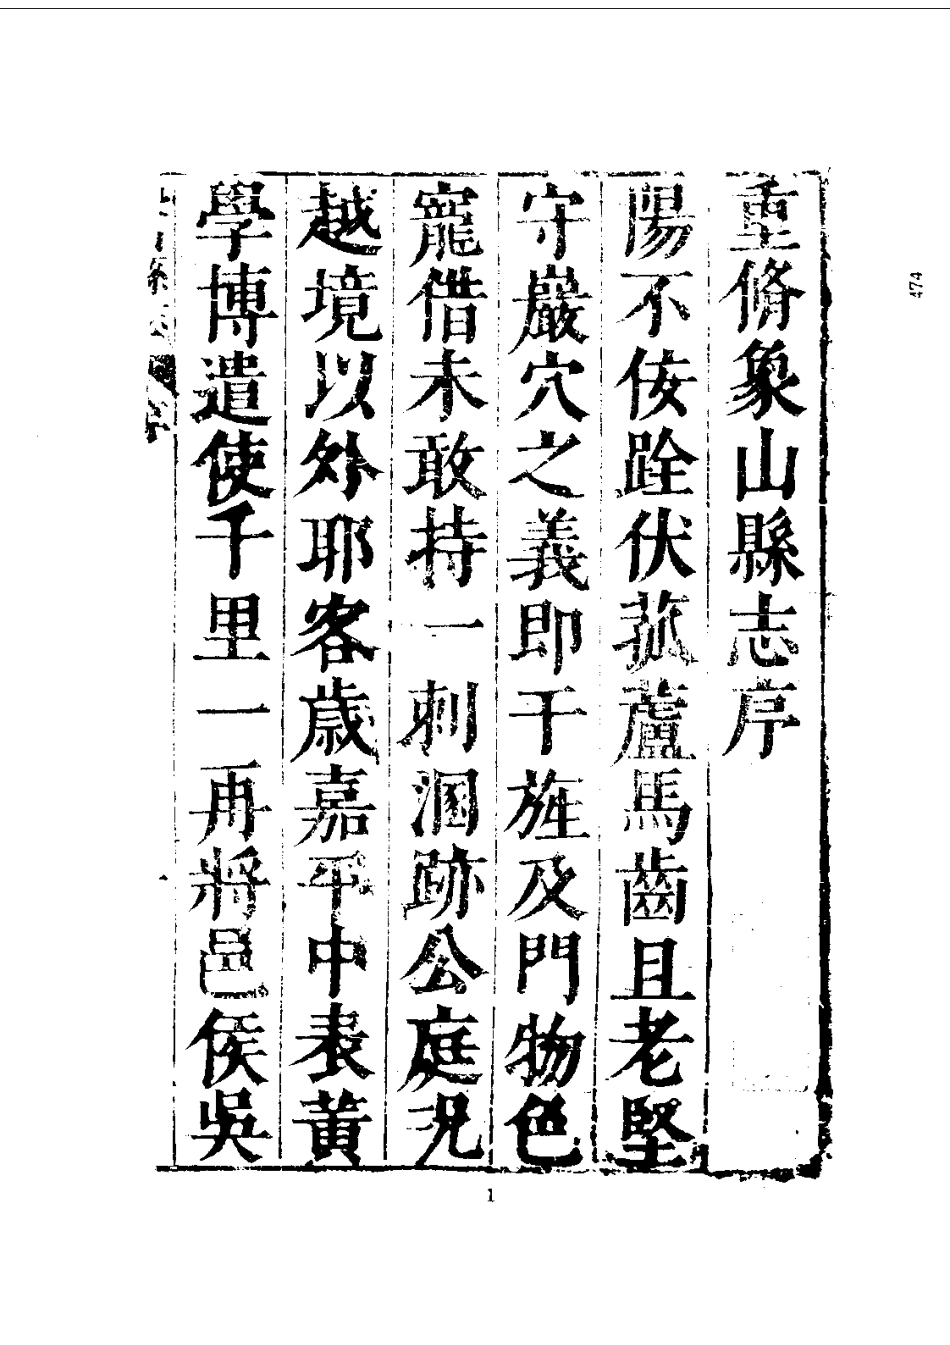 重脩象山縣志序
陽不佞跧伏菰蘆馬齒且老堅
守巖穴之義即干旌及門物色
寵借未敢持一刺溷跡公庭况
越境以外耶客歲嘉平中表黃
學博遣使千里一再將邑侯吳
474
1